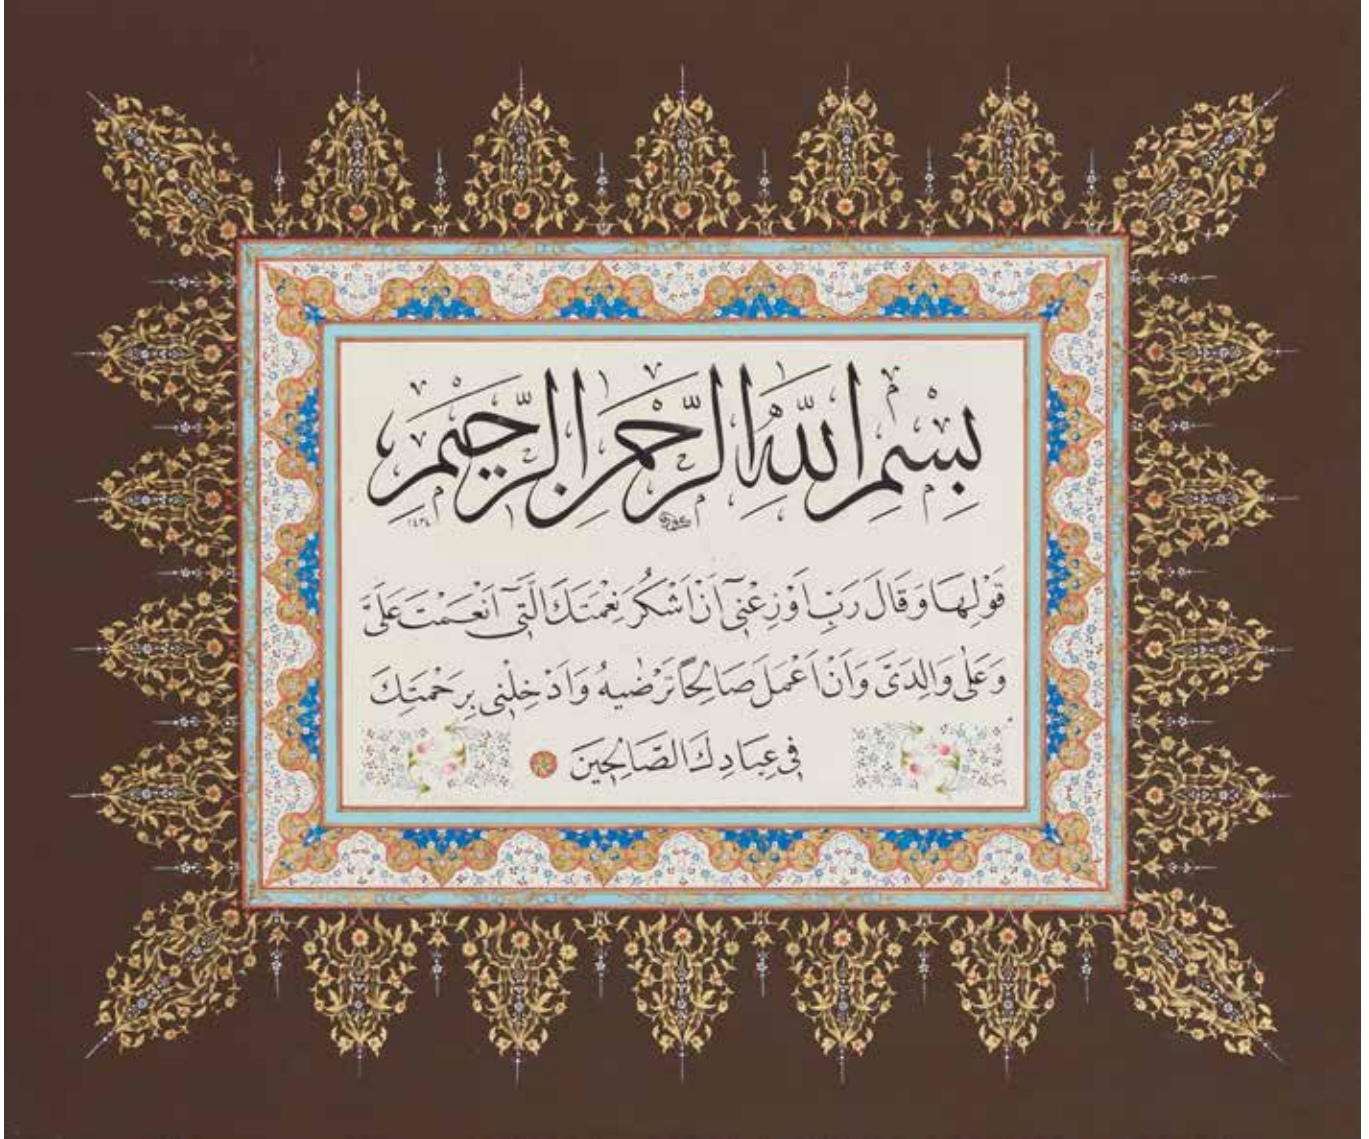 بِسْمِ اللّٰهِ الرَّحْمٰنِ الرَّحِيمِ
١٤٣٤
قَوْلِهَا وَقَالَ رَبِّ اَوْزِعْنِىٓ اَنْ اَشْكُرَ نِعْمَتَكَ الَّتِىٓ اَنْعَمْتَ عَلَىَّ
وَعَلٰى وَالِدَىَّ وَاَنْ اَعْمَلَ صَالِحًا تَرْضٰيهُ وَاَدْخِلْنِى بِرَحْمَتِكَ
فِى عِبَادِكَ الصَّالِحِينَ